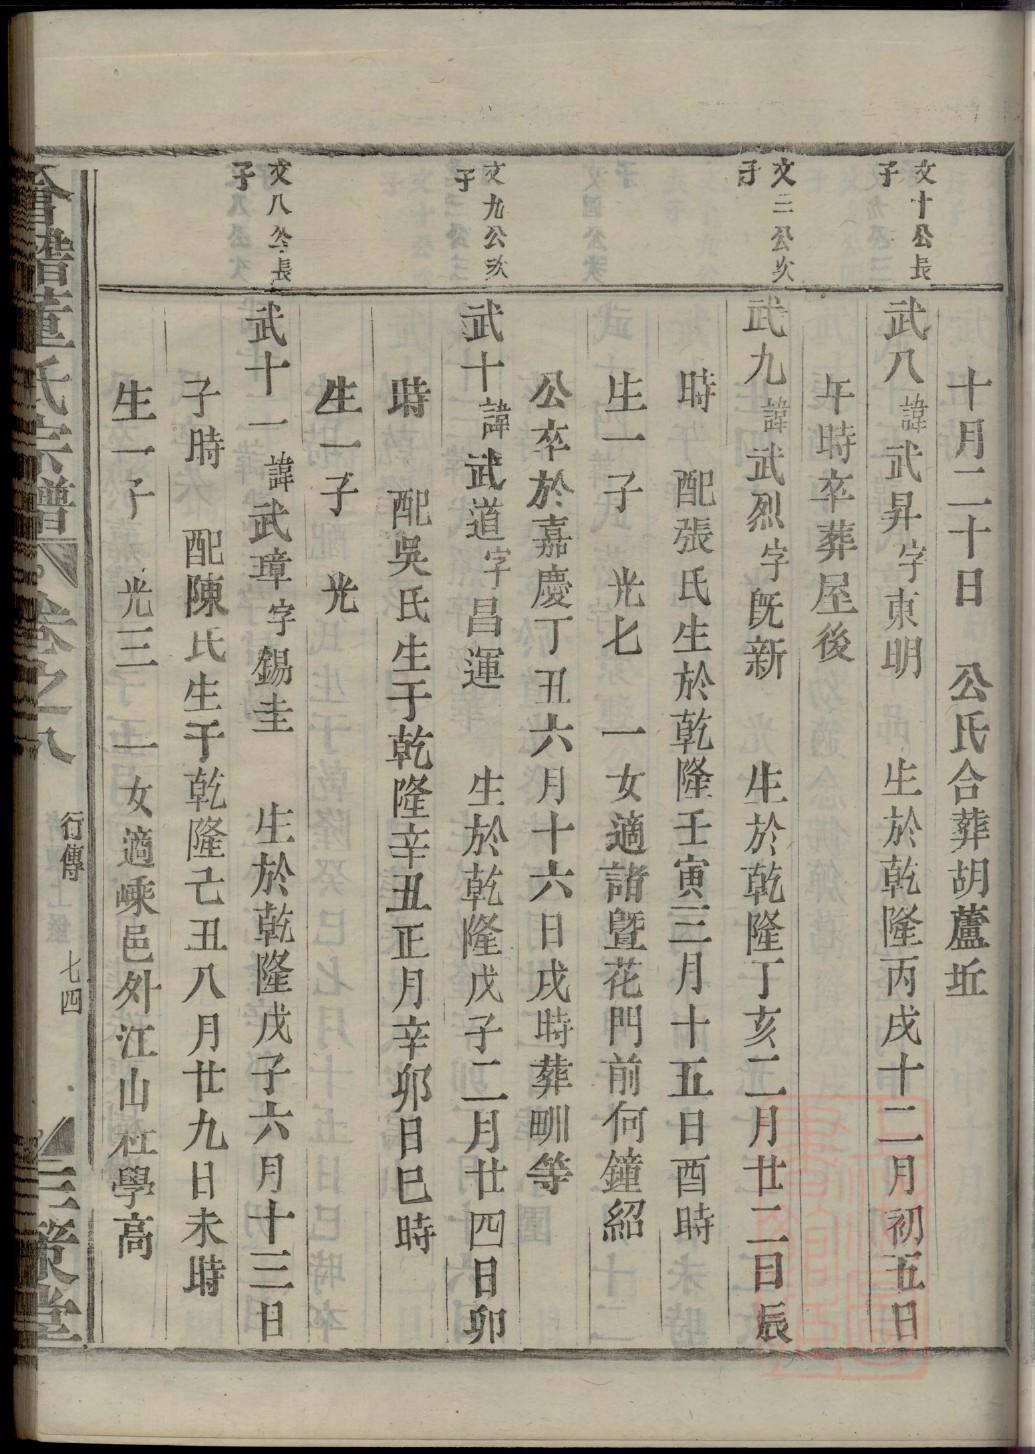 十月二十日　公氏合葬胡蘆坵
文十公長子
武八諱武昇字東明　生於乾隆丙戌十二月初五日
午時卒葬屋後
文三公次子
武九諱武烈字旣新　生於乾隆丁亥二月廿二日辰
時　配張氏生於乾隆壬寅三月十五日酉時
生一子　光七　一女適諸暨花門前何鐘紹
公卒於嘉慶丁丑六月十六日戌時葬畎等
文九公次子
武十諱武道字昌運　生於乾隆戊子二月廿四日卯
時　配吳氏生于乾隆辛丑正月辛卯日巳時
生一子　光
文八公長子
武十一諱武璋字錫圭　生於乾隆戊子六月十三日
子時　配陳氏生于乾隆己丑八月廿九日未時
生一子　光三　一女適嵊邑外江山社學高
會稽董氏宗譜　卷之八　行傳　七四　三策堂